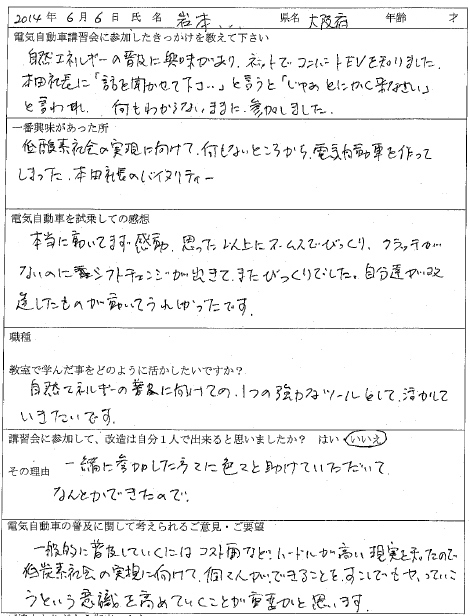 2014年 6月 6日 氏 名 岩本 県名 大阪府 年齢 才
電気自動車講習会に参加したきっかけを教えて下さい
自然エネルギーの普及に興味があり、ネットでコンバートEVを知りました。
本田社長に「話を聞かせて下さい」と言うと「じゃあとにかく来なさい」
と言われ、何もわからないままに参加しました。
一番興味があった所
低酸素社会の実現に向けて、何もないところから、電気自動車を作って
しまった、本田社長のバイタリティー
電気自動車を試乗しての感想
本当に動いてまず感動、思った以上にスムースでびっくり、クラッチが
ないのにシフトチェンジが出きて、またびっくりでした。自分達が改
造したものが動いてうれしかったです。
職種
教室で学んだ事をどのように活かしたいですか?
自然エネルギーの普及に向けての、1つの強力なツールとして、活かして
いきたいです。
講習会に参加して、改造は自分1人で出来ると思いましたか? はい いいえ
その理由 一緒に参加した方々に色々と助けていただいて
なんとかできたので。
電気自動車の普及に関して考えられるご意見・ご要望
一般的に普及していくにはコスト面など、ハードルが高い現実を知ったので
低炭素社会の実現に向けて、個々人ができることを、すこしでもやっていこ
うという意識を高めていくことが重要かと思います。